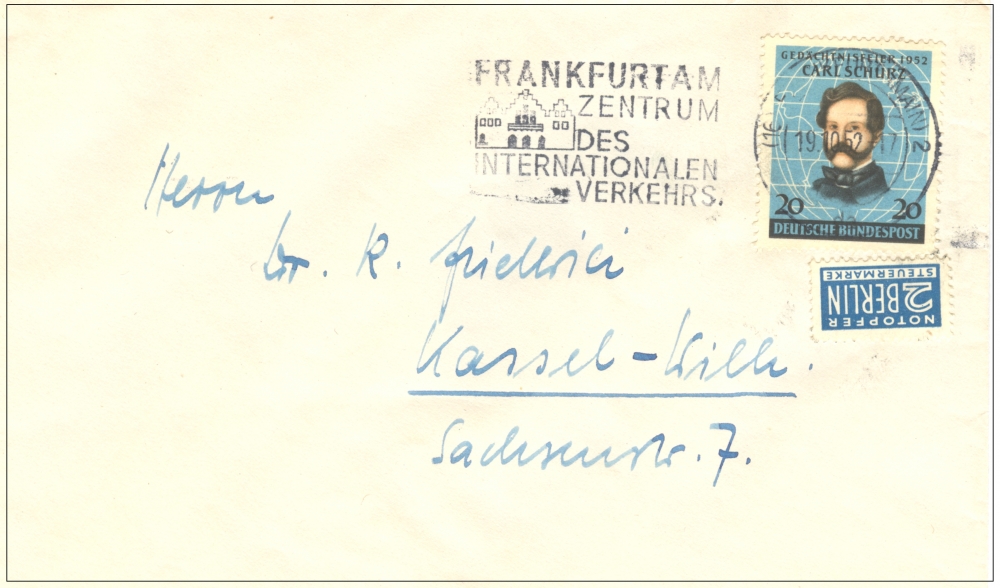 FRANKFURT AM
ZENTRUM
DES
INTERNATIONALEN
VERKEHRS.
GEDÄCHTNISFEIER 1952
CARL SCHURZ
(16) (MAIN) 2
19.10.52. 17
20 20
DEUTSCHE BUNDESPOST
NOTOPFER
2 BERLIN
STEUERMARKE
Herrn
Dr. K. Friderici
Kassel-Wilh.
Sachsenstr. 7.